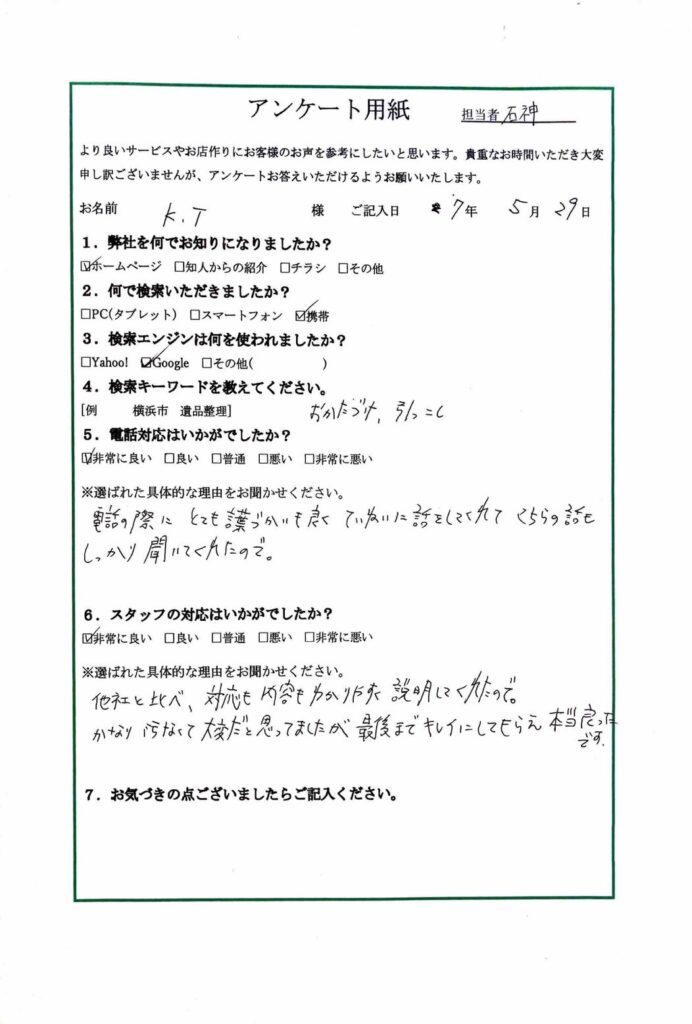 アンケート用紙
担当者 石神
より良いサービスやお店作りにお客様のお声を参考にしたいと思います。貴重なお時間いただき大変
申し訳ございませんが、アンケートお答えいただけるようお願いいたします。
お名前 K.T 様 ご記入日 7年 5月 29日
1．弊社を何でお知りになりましたか？
☑ホームページ □知人からの紹介 □チラシ □その他
2．何で検索いただきましたか？
□PC(タブレット) □スマートフォン ☑携帯
3．検索エンジンは何を使われましたか？
□Yahoo! ☑Google □その他( )
4．検索キーワードを教えてください。
[例 横浜市 遺品整理] おかたづけ、引っこし
5．電話対応はいかがでしたか？
☑非常に良い □良い □普通 □悪い □非常に悪い
※選ばれた具体的な理由をお聞かせください。
電話の際に とても言葉づかいも良く ていねいに話をしてくれて こちらの話も
しっかり聞いてくれたので。
6．スタッフの対応はいかがでしたか？
☑非常に良い □良い □普通 □悪い □非常に悪い
※選ばれた具体的な理由をお聞かせください。
他社と比べ、対応も内容もわかりやすく説明してくれたので。
かなり汚なくて大変だと思ってましたが 最後までキレイにしてもらえ 本当良った
です.
7．お気づきの点ございましたらご記入ください。